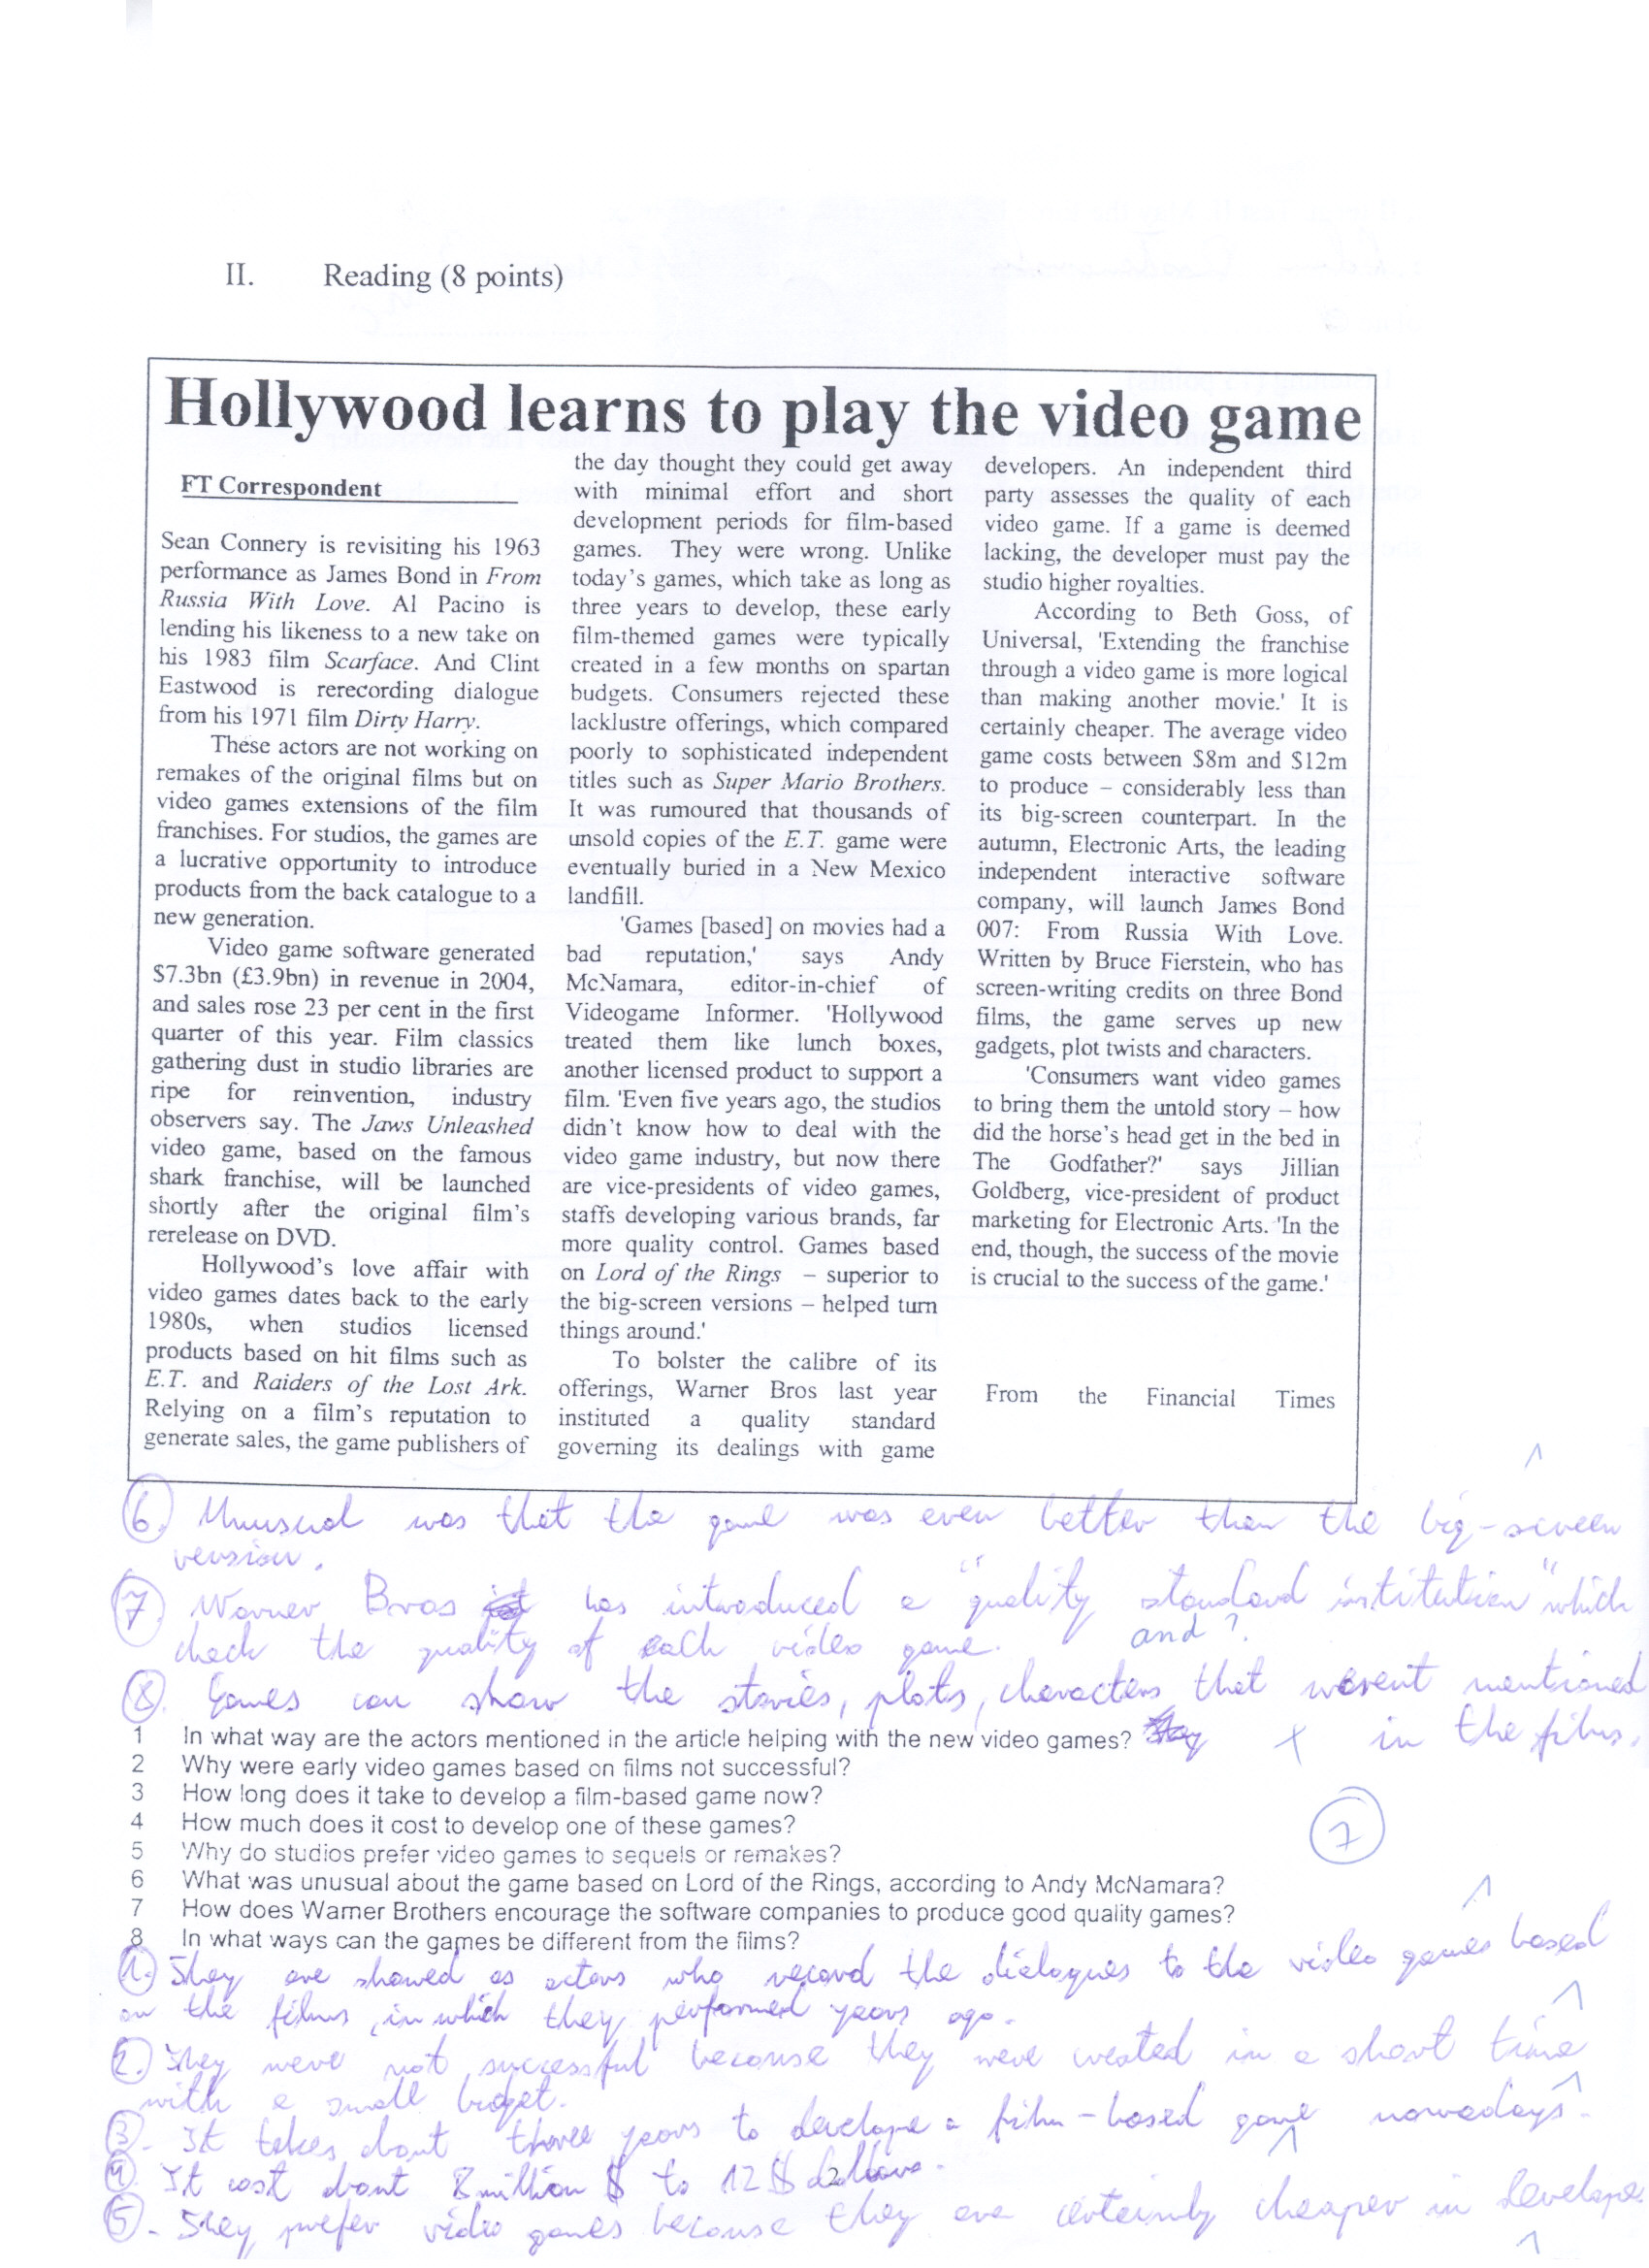 II. Reading (8 points)
Hollywood learns to play the video game
FT Correspondent
Sean Connery is revisiting his 1963
performance as James Bond in From
Russia With Love. Al Pacino is
lending his likeness to a new take on
his 1983 film Scarface. And Clint
Eastwood is rerecording dialogue
from his 1971 film Dirty Harry.
These actors are not working on
remakes of the original films but on
video games extensions of the film
franchises. For studios, the games are
a lucrative opportunity to introduce
products from the back catalogue to a
new generation.
Video game software generated
$7.3bn (£3.9bn) in revenue in 2004,
and sales rose 23 per cent in the first
quarter of this year. Film classics
gathering dust in studio libraries are
ripe for reinvention, industry
observers say. The Jaws Unleashed
video game, based on the famous
shark franchise, will be launched
shortly after the original film's
rerelease on DVD.
Hollywood's love affair with
video games dates back to the early
1980s, when studios licensed
products based on hit films such as
E.T. and Raiders of the Lost Ark.
Relying on a film's reputation to
generate sales, the game publishers of
the day thought they could get away
with minimal effort and short
development periods for film-based
games. They were wrong. Unlike
today's games, which take as long as
three years to develop, these early
film-themed games were typically
created in a few months on spartan
budgets. Consumers rejected these
lacklustre offerings, which compared
poorly to sophisticated independent
titles such as Super Mario Brothers.
It was rumoured that thousands of
unsold copies of the E.T. game were
eventually buried in a New Mexico
landfill.
'Games [based] on movies had a
bad reputation,' says Andy
McNamara, editor-in-chief of
Videogame Informer. 'Hollywood
treated them like lunch boxes,
another licensed product to support a
film. 'Even five years ago, the studios
didn't know how to deal with the
video game industry, but now there
are vice-presidents of video games,
staffs developing various brands, far
more quality control. Games based
on Lord of the Rings – superior to
the big-screen versions – helped turn
things around.'
To bolster the calibre of its
offerings, Warner Bros last year
instituted a quality standard
governing its dealings with game
developers. An independent third
party assesses the quality of each
video game. If a game is deemed
lacking, the developer must pay the
studio higher royalties.
According to Beth Goss, of
Universal, 'Extending the franchise
through a video game is more logical
than making another movie.' It is
certainly cheaper. The average video
game costs between $8m and $12m
to produce – considerably less than
its big-screen counterpart. In the
autumn, Electronic Arts, the leading
independent interactive software
company, will launch James Bond
007: From Russia With Love.
Written by Bruce Fierstein, who has
screen-writing credits on three Bond
films, the game serves up new
gadgets, plot twists and characters.
'Consumers want video games
to bring them the untold story – how
did the horse's head get in the bed in
The Godfather?' says Jillian
Goldberg, vice-president of product
marketing for Electronic Arts. 'In the
end, though, the success of the movie
is crucial to the success of the game.'
From the Financial Times
6. Unusual was that the game was even better than the big-screen
version.
7. Warner Bros has introduced a "quality standard institution" which
check the quality of each video game. and?
8. Games can show the stories, plots, characters that werent mentioned
in the films.
1 In what way are the actors mentioned in the article helping with the new video games?
2 Why were early video games based on films not successful?
3 How long does it take to develop a film-based game now?
4 How much does it cost to develop one of these games?
5 Why do studios prefer video games to sequels or remakes?
6 What was unusual about the game based on Lord of the Rings, according to Andy McNamara?
7 How does Warner Brothers encourage the software companies to produce good quality games?
8 In what ways can the games be different from the films?
7
1. They are showed as actors who record the dialogues to the video games based
on the films, in which they performed years ago.
2. They were not successful because they were created in a short time
with a small budget.
3. It takes about three years to develope a film-based game nowadays.
4. It cost about 8 million $ to 12 $ dollars.
5. They prefer video games because they are certainly cheaper in develope.